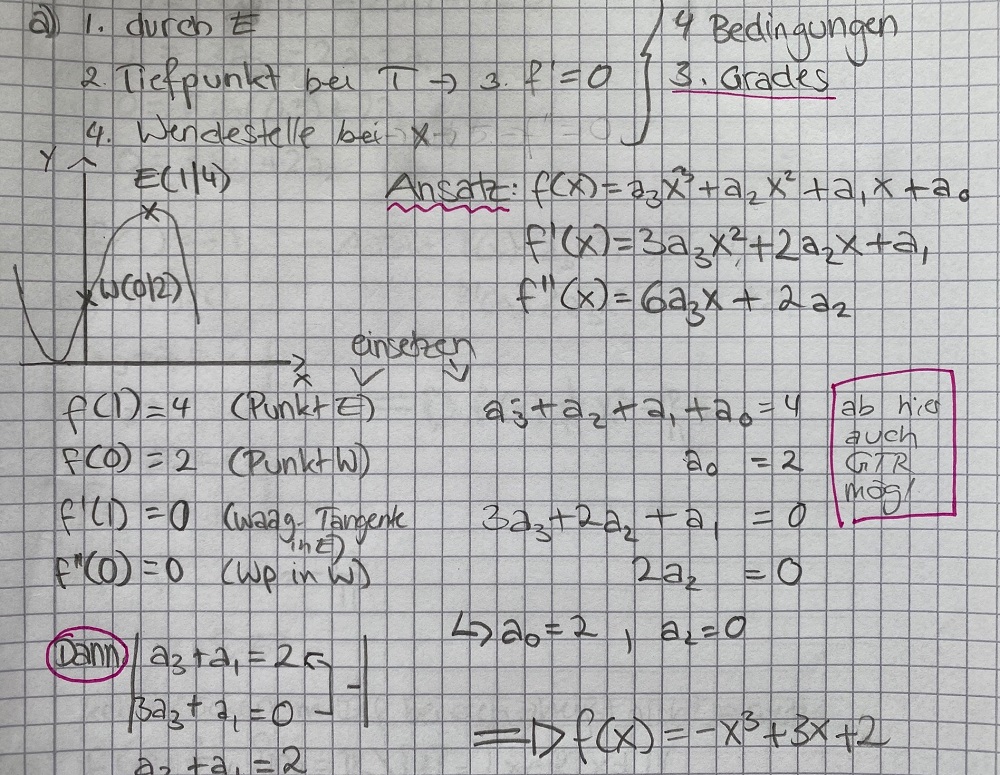 a) 1. durch E
2. Tiefpunkt bei T → 3. f' = 0
4. Wendestelle bei x
4 Bedingungen
3. Grades
Y
E(1|4)
W(0|2)
x
Ansatz: f(x) = a₃x³ + a₂x² + a₁x + a₀
f'(x) = 3a₃x² + 2a₂x + a₁
f''(x) = 6a₃x + 2a₂
einsetzen
f(1) = 4 (Punkt E) a₃ + a₂ + a₁ + a₀ = 4
f(0) = 2 (Punkt W) a₀ = 2
f'(1) = 0 (waag. Tangente in E) 3a₃ + 2a₂ + a₁ = 0
f''(0) = 0 (Wp in W) 2a₂ = 0
ab hier
auch
GTR
mögl
↳ a₀ = 2 , a₂ = 0
Dann a₃ + a₁ = 2
3a₃ + a₁ = 0 -
a₃ + a₁ = 2
⇒ f(x) = -x³ + 3x + 2